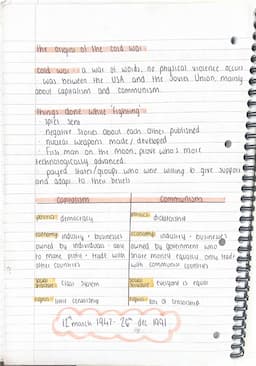 the origins of the cold war
cold war - a war of words, no physical violence occurs
was between the USA and the Soviet Union, mainly
about capitalism and communism.
things done while 'fighting'
· spies sent
· negative stories about each other published
· nuclear weapons made/developed
· first man on the moon, prove who's more
technologically advanced
· payed states/groups who were willing to give support
and adapt to their beliefs
capitalism
communism
democracy
dictatorship
economy industry + businesses
owned by individuals - able
to make profit - trade with
other countries
economy industry + businesses
owned by government who
share money equally, only trade
with communist countries
class system
everyone is equal
little censorship
lots of censorship
12th march 1947 - 26th dec 1991